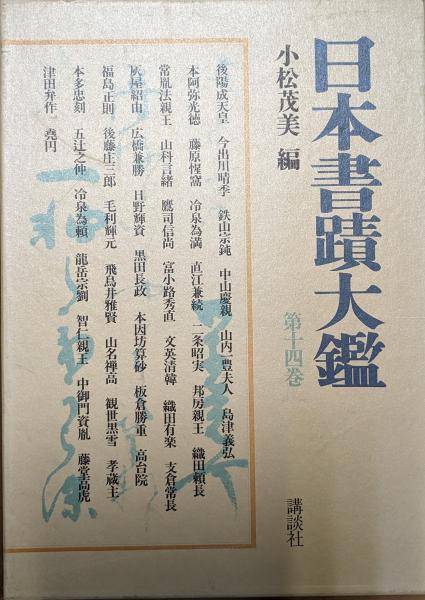 日本書蹟大鑑
第十四巻
小松茂美 編
講談社
後陽成天皇 今出川晴季 鉄山宗鈍 中山慶親 山内一豊夫人 島津義弘
本阿弥光徳 藤原惺窩 冷泉為満 直江兼続 二条昭実 邦房親王 織田頼長
常胤法親王 山科言緒 鷹司信尚 富小路秀直 文英清韓 織田有楽 支倉常長
灰屋紹由 広橋兼勝 日野輝資 黒田長政 本因坊算砂 板倉勝重 高台院
福島正則 後藤庄三郎 毛利輝元 飛鳥井雅賢 山名禅高 観世黒雪 孝蔵主
本多忠刻 五辻之仲 冷泉為頼 龍岳宗劉 智仁親王 中御門資胤 藤堂高虎
津田弁作 堯円